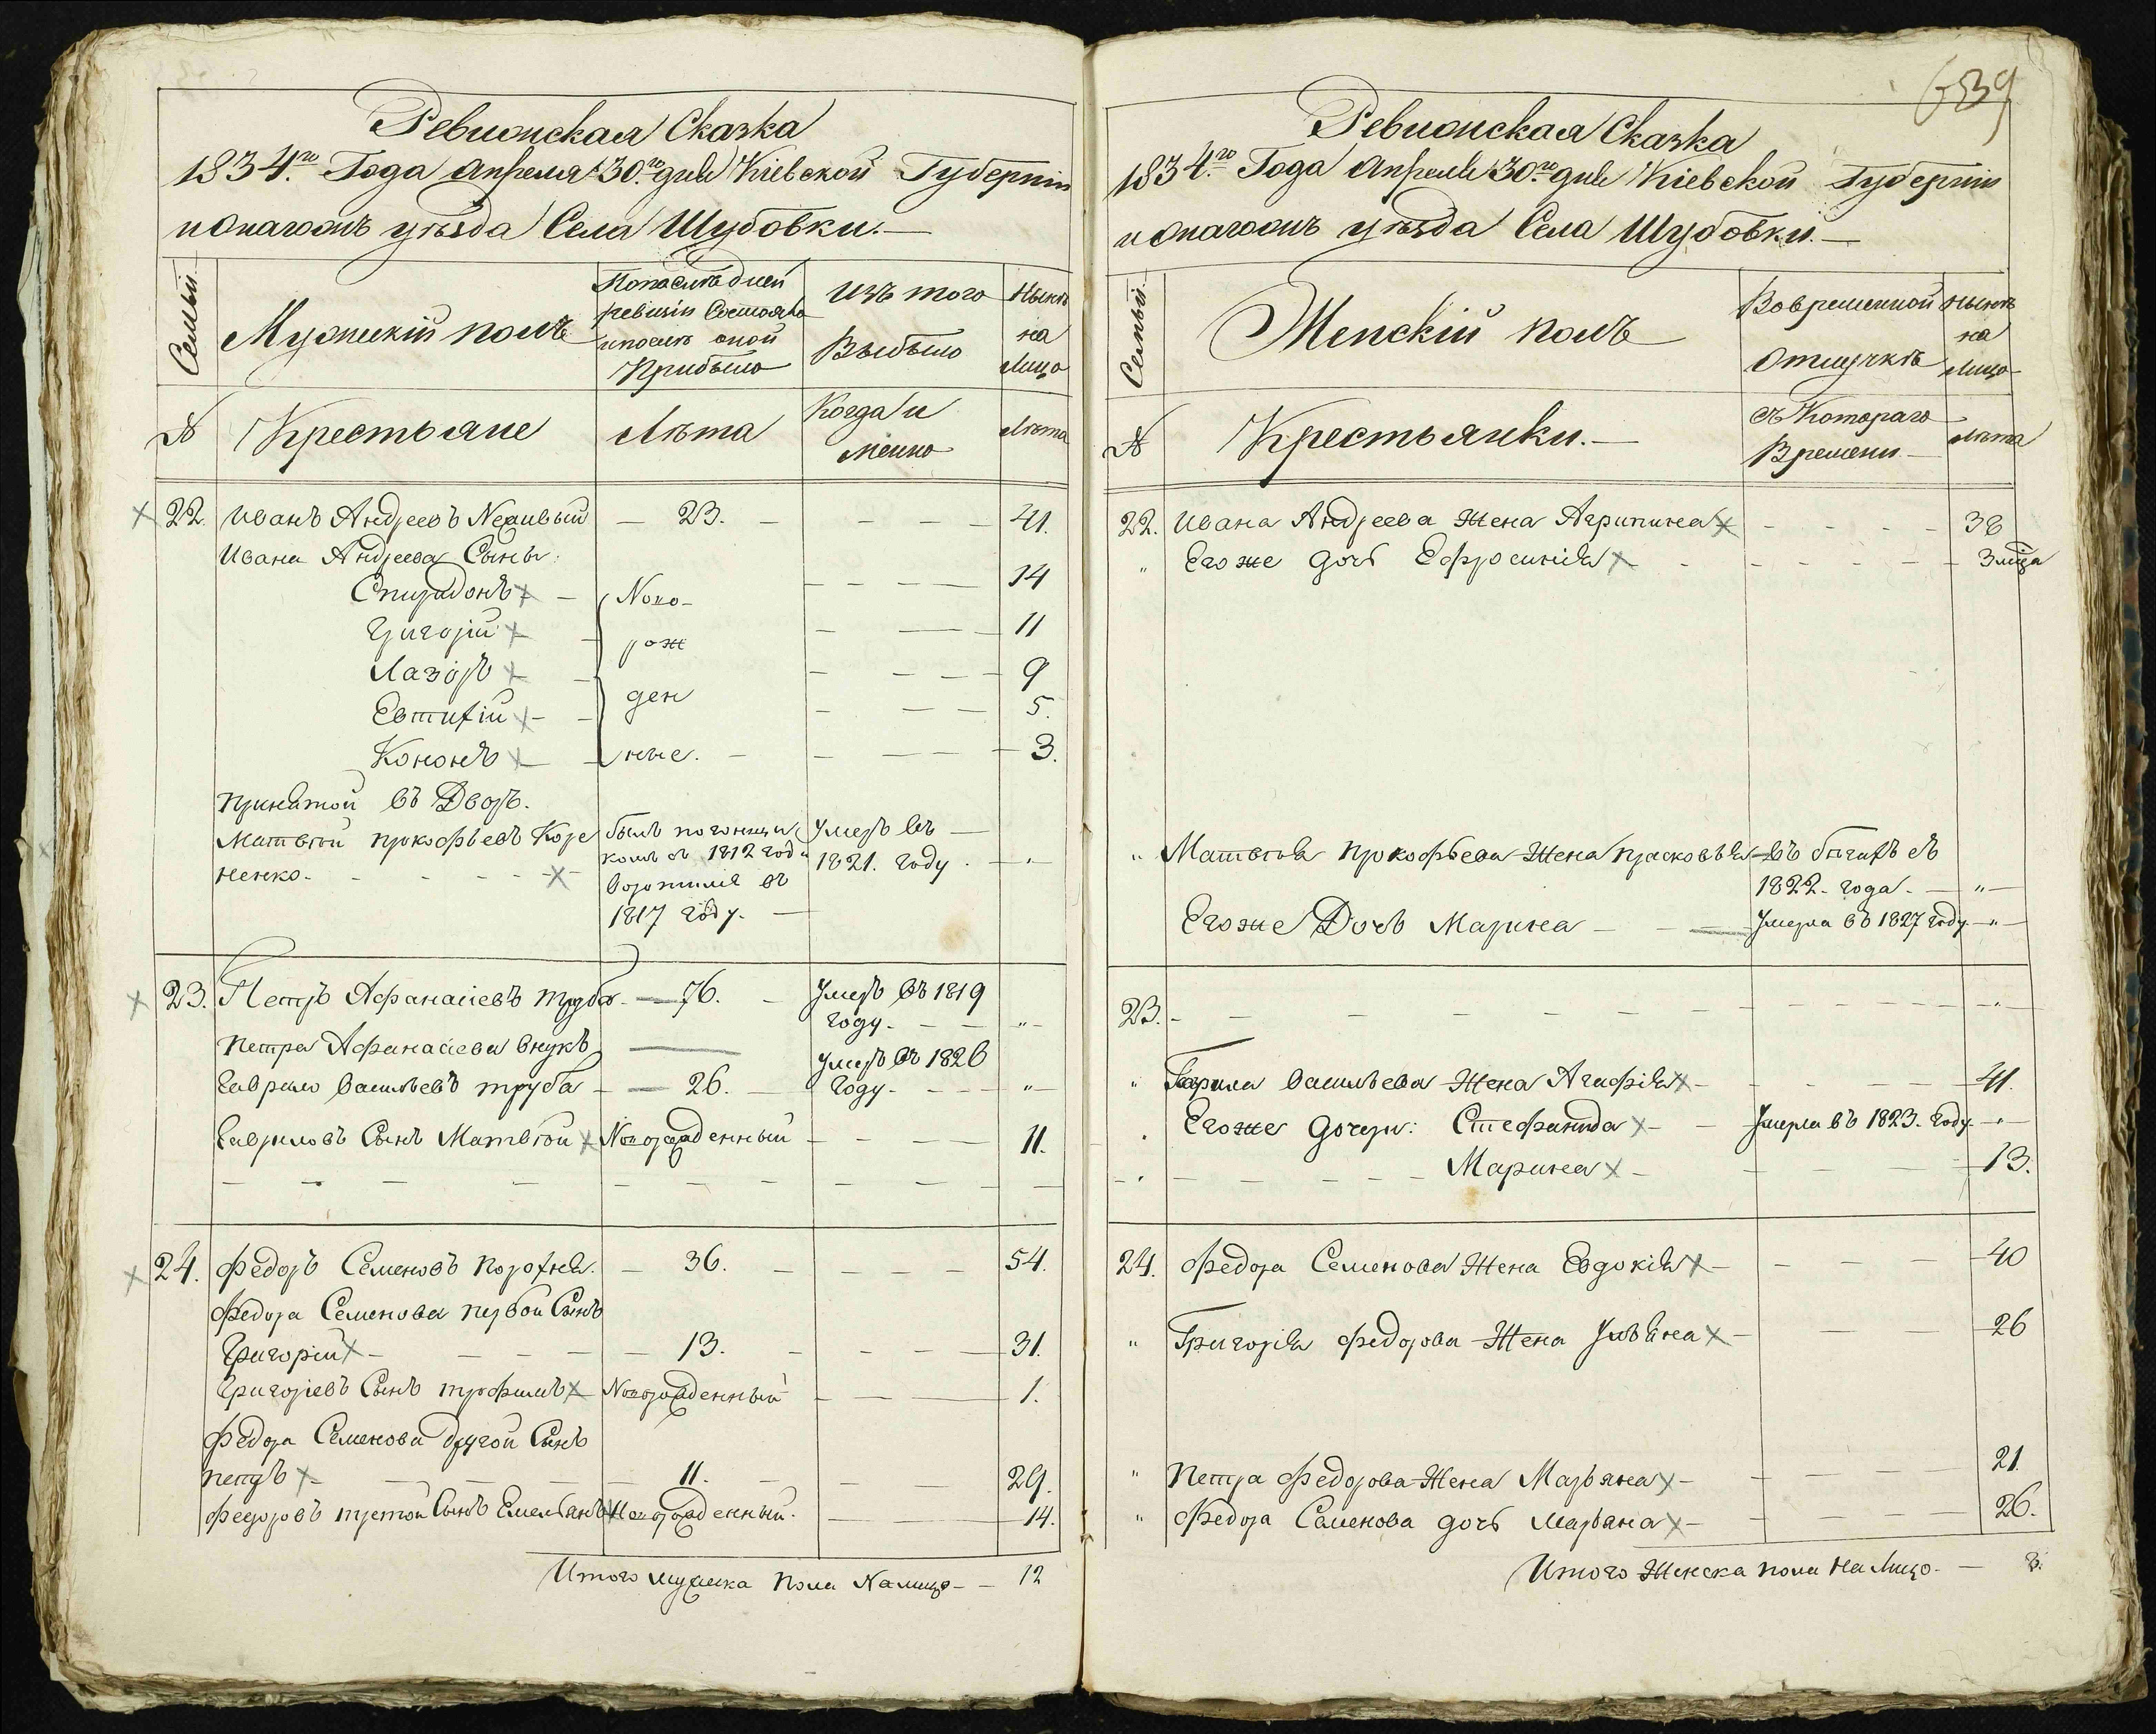 Ревизская Сказка
1834го Года Апреля 30го дня Кіевской Губерніи
уѣзда Села Шубовки.
Семьи
Мужескій полъ
По последней ревизіи Состояло и после оной Прибыло
Изъ того Выбыло
Нынѣ на Лицо
№
Крестьяне
Лѣта
Когда и менно
Лѣта
22. Иванъ Андреевъ — 23. — — — — 41.
Ивана Андреева Сыны:
Спиридонъ — Ново- — — — 14
Григорій рож — — — 11
Лазорь — — — 9
Евтихій ден — — — 5.
Кононъ ные. — — — 3.
принятой въ Дворъ.
Матвѣй прокофьевъ Коре былъ погонщи Умеръ въ —
ненко. комъ съ 1812 года 1821. году. — „ —
воротился въ
1817 году. —
23. Петръ Афанасіевъ труба — 76. — Умеръ въ 1819
году. — — „ —
петра Афанасіева внукъ — Умеръ въ 1826
Гаврило Васильевъ труба — 26. — году. — — „ —
Гавриловъ Сынъ Матвѣй Новорожденный — — — 11.
24. Федоръ Семеновъ порохня. — 36. — — — — 54.
Федора Семенова первой Сынъ
Григорій — — — 13. — — — — 31.
Григоріевъ Сынъ трофимъ Новорожденный — — — 1.
Федора Семенова другой Сынъ
петръ — — — 11. — — — 29.
Федоровъ третой Сынъ Емельянъ Новорожденный. — — 14.
Итого мужеска пола На лицо — — 12
639
Ревизская Сказка
1834го Года Апреля 30го дня Кіевской Губерніи
уѣзда Села Шубовки. —
Семьи
Женскій полъ
Во временной Отлучкѣ
Нынѣ на Лицо
№
Крестьянки. —
Съ Котораго Времени —
Лѣта
22. Ивана Андреева Жена Агрипина — — — — 38
„ Его же дочь Ефросинія — — — — 3
„ Матвѣя прокофьева Жена прасковья въ бѣгахъ съ
1822. года. — „ —
Его же Дочь Марина — — Умерла въ 1827 году — „ —
23. — — — — — — — — — „
„ Гаврила Васильева Жена Агафія — — — 41.
„ Его же дочери: Стефанида — Умерла въ 1823. году. — „ —
— „ — — — — Марина — — — 13.
24. Федора Семенова Жена Евдокія — — — 40
„ Григорія Федорова Жена Ульяна — — — 26
„ петра Федорова Жена Марьяна — — — 21
„ Федора Семенова дочь Марьяна — — — 26.
Итого Женска пола На Лицо. — 8.